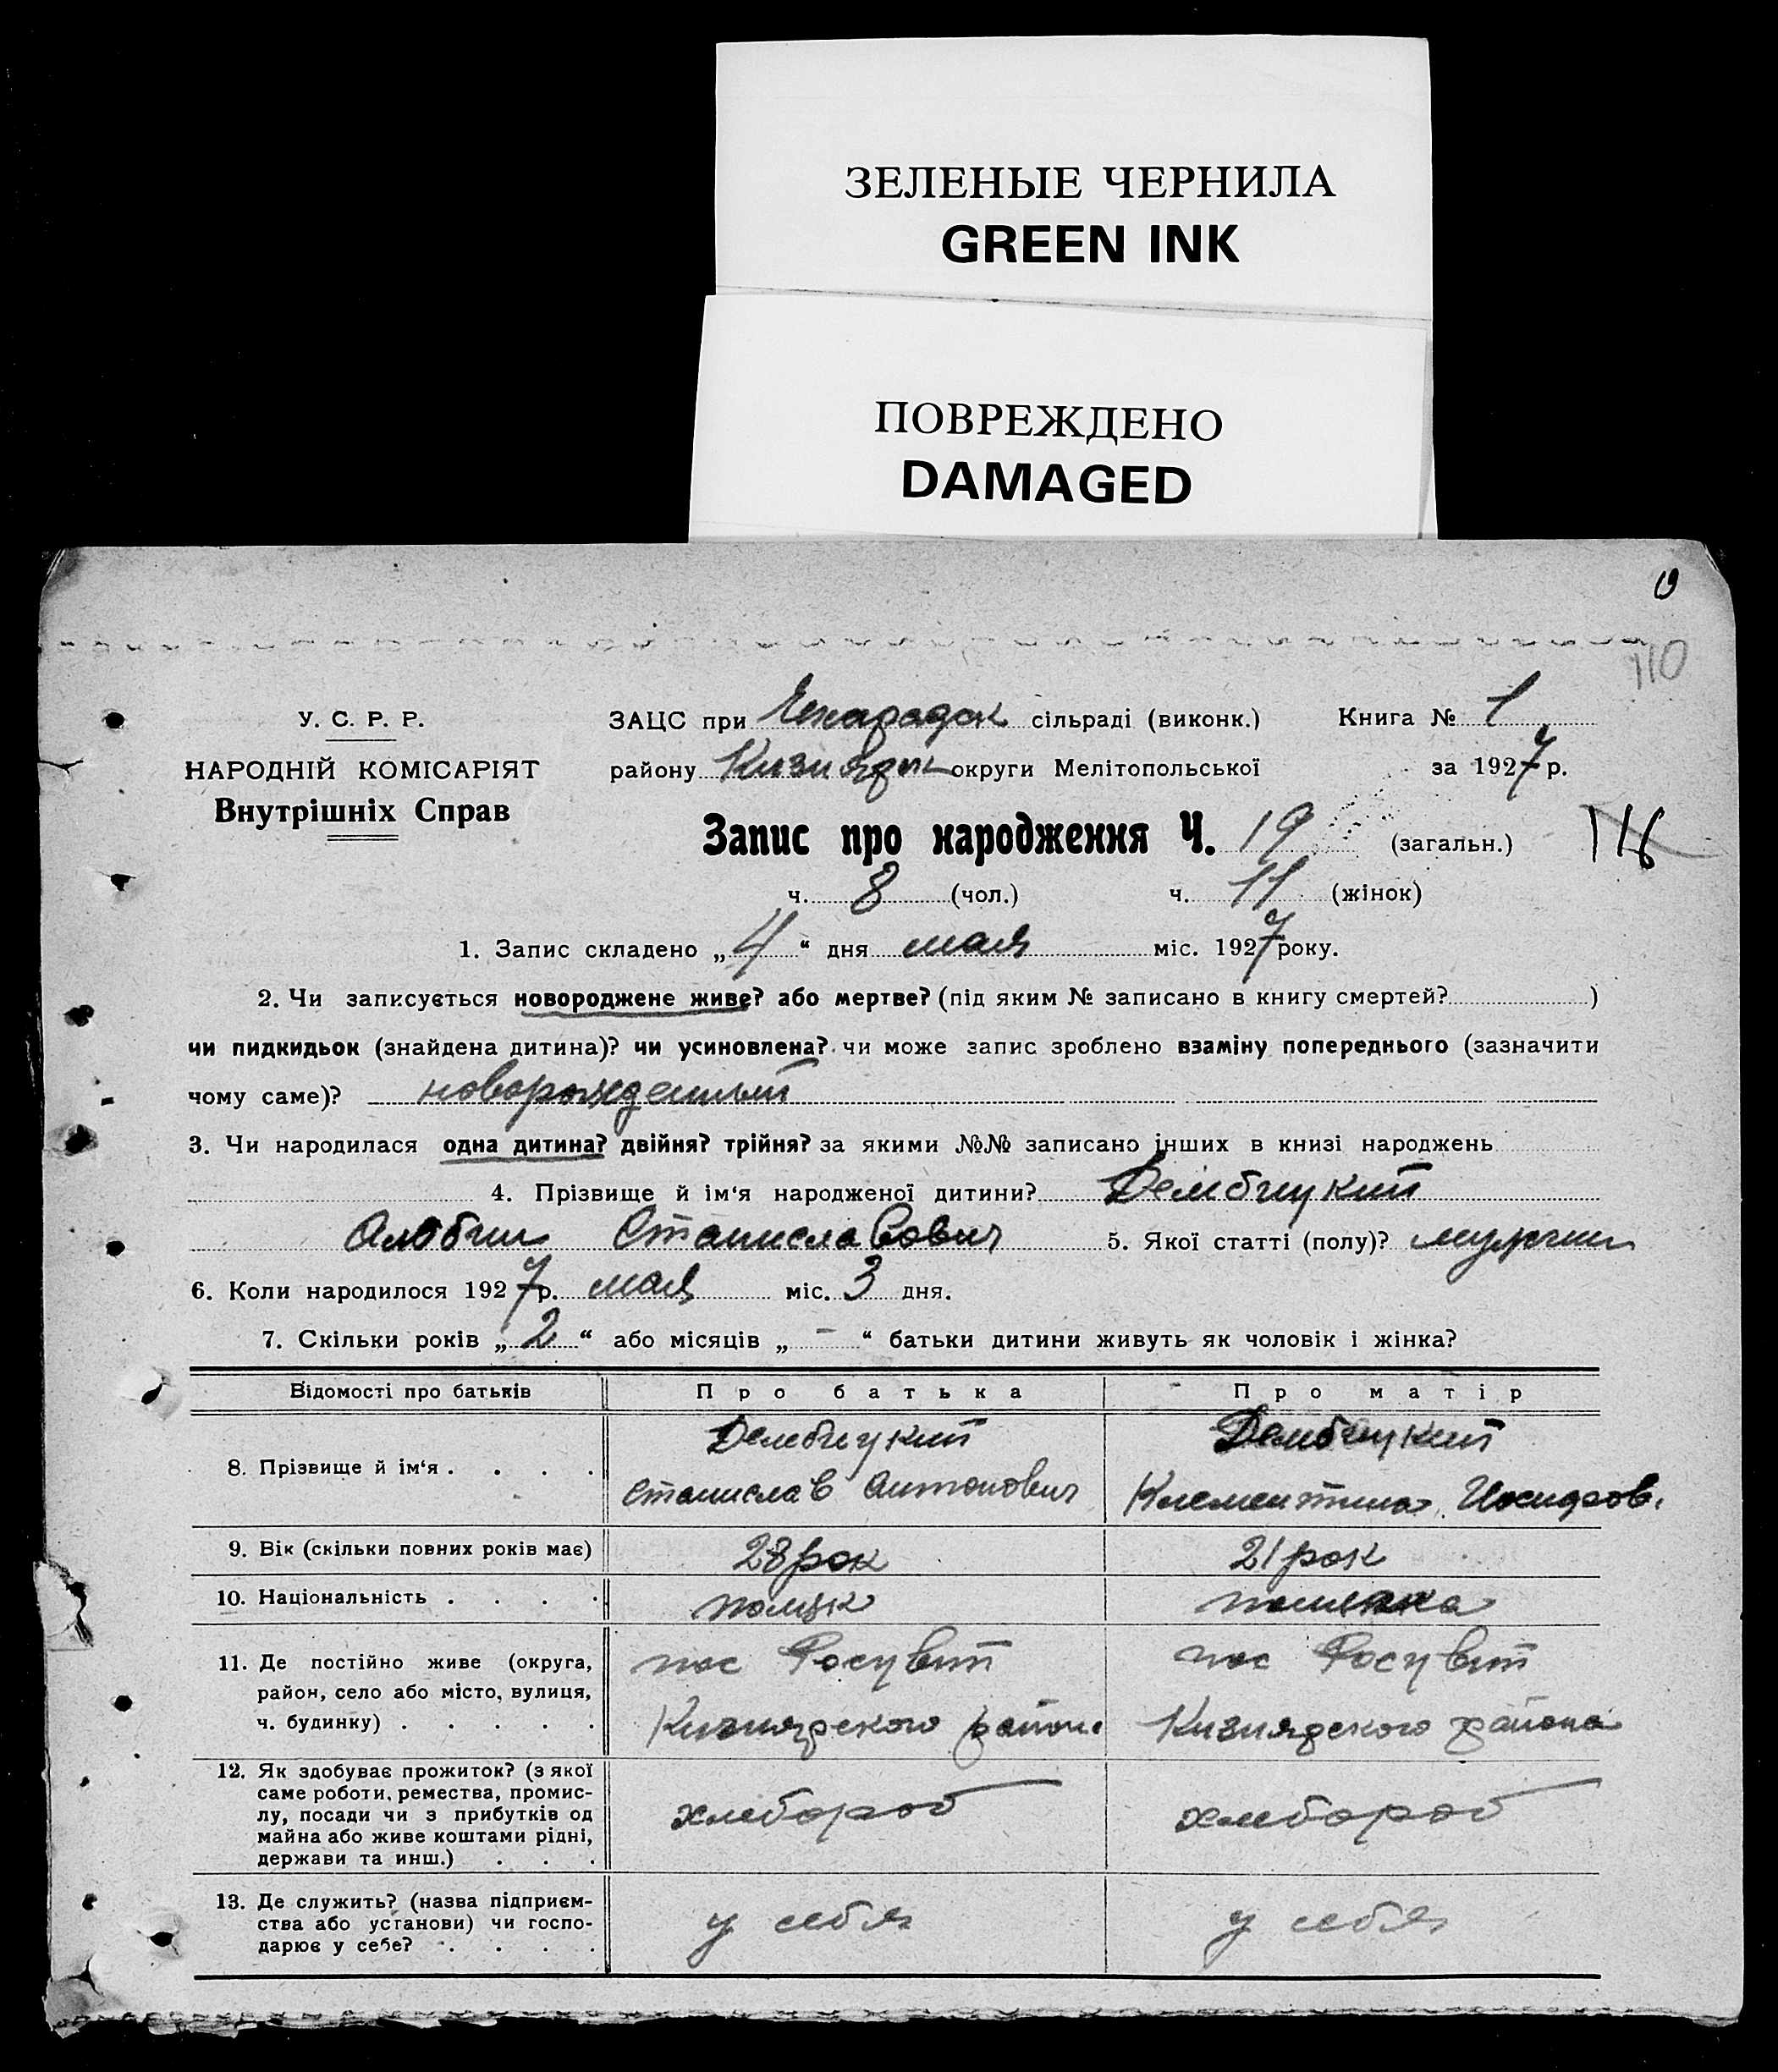 ЗЕЛЕНЫЕ ЧЕРНИЛА
GREEN INK
ПОВРЕЖДЕНО
DAMAGED
19
110
У. С. Р. Р.
НАРОДНІЙ КОМІСАРІЯТ
Внутрішніх Справ
ЗАЦС при сільраді (виконк.) Книга № 1
району округи Мелітопольської за 1927 р.
Запис про народження Ч. 19 (загальн.) 116
ч. 8 (чол.) ч. 11 (жінок)
1. Запис складено „4“ дня мая міс. 1927 року.
2. Чи записується новороджене живе? або мертве? (під яким № записано в книгу смертей? )
чи пидкидьок (знайдена дитина)? чи усиновлена? чи може запис зроблено взаміну попереднього (зазначити
чому саме)? новорожденный
3. Чи народилася одна дитина? двійня? трійня? за якими №№ записано інших в книзі народжень
4. Прізвище й ім‘я народженої дитини? Дембицкий
Альбин Станиславович 5. Якої статті (полу)? мужчин
6. Коли народилося 1927 р. мая міс. 3 дня.
7. Скільки років „2“ або місяців „-“ батьки дитини живуть як чоловік і жінка?
Відомості про батьків Про батька Про матір
Дембицкий Дембицкий
8. Прізвище й ім‘я . . . .
Станислав Антонович Клементина
9. Вік (скільки повних років має) 28 рок 21 рок
10. Національність . . . . поляк полячка
11. Де постійно живе (округа, пос пос
район, село або місто, вулиця,
ч. будинку) . . . . . Кизиярского района Кизиярского района
12. Як здобуває прожиток? (з якої
саме роботи, ремества, промис-
лу, посади чи з прибутків од хлебороб хлебороб
майна або живе коштами рідні,
держави та инш.) . . .
13. Де служить? (назва підприєм-
ства або установи) чи госпо- у себя у себя
дарює у себе? . . . .